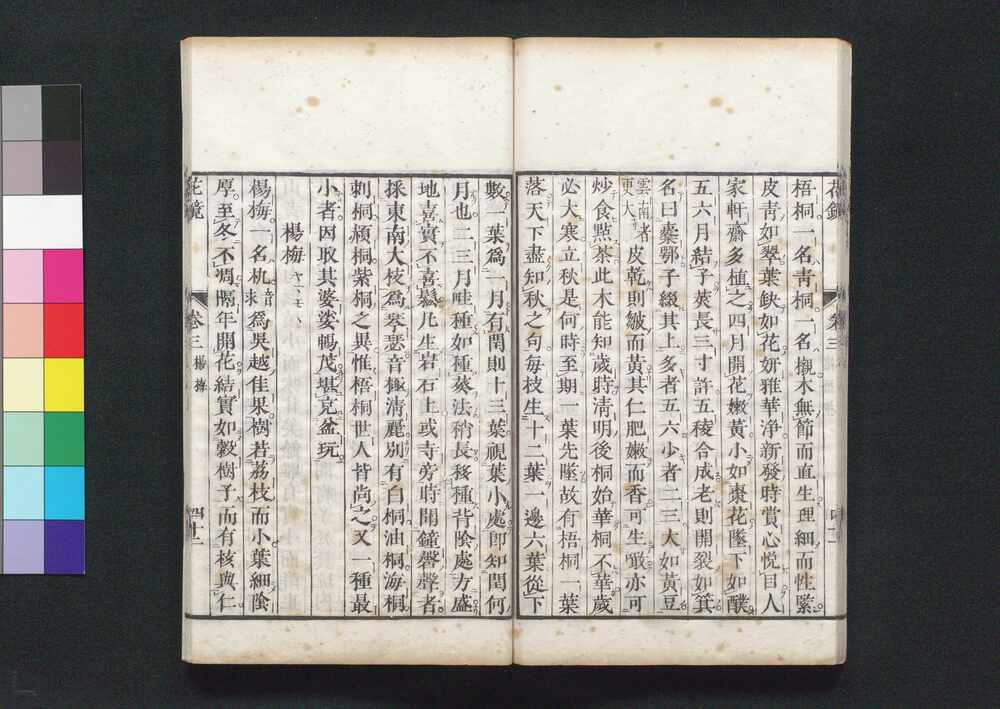 花鏡
卷三
梧桐一名青桐一名櫬木無節而直生理細而性緊
皮青如翠葉缺如花妍雅華淨新發時賞心悅目人
家軒齋多植之四月開花嫩黃小如棗花墜下如醭
五六月結子莢長三寸許五稜合成老則開裂如箕
名曰櫜鄂子綴其上多者五六少者二三大如黃豆
雲南者更大皮乾則皺而黃其仁肥嫩而香可生噉亦可
炒食點茶此木能知歲時清明後桐始華桐不華歲
必大寒立秋是何時至期一葉先墜故有梧桐一葉
落天下盡知秋之句每枝生十二葉一邊六葉從下
數一葉爲一月有閏則十三葉視葉小處卽知閏何
月也二三月畦種如種葵法稍長移種背陰處方盛
地喜實不喜鬆凡生岩石上或寺旁時聞鐘磬聲者
採東南大枝爲琴瑟音極清麗別有白桐油桐海桐
刺桐赬桐紫桐之異惟梧桐世人皆尚之又一種最
小者因取其婆娑暢茂堪充盆玩
楊梅 ヤマモヽ
楊梅一名朹音求爲吳越佳果樹若荔枝而小葉細陰
厚至冬不凋隔年開花結實如穀樹子而有核與仁
花鏡
卷三 楊梅
四十二